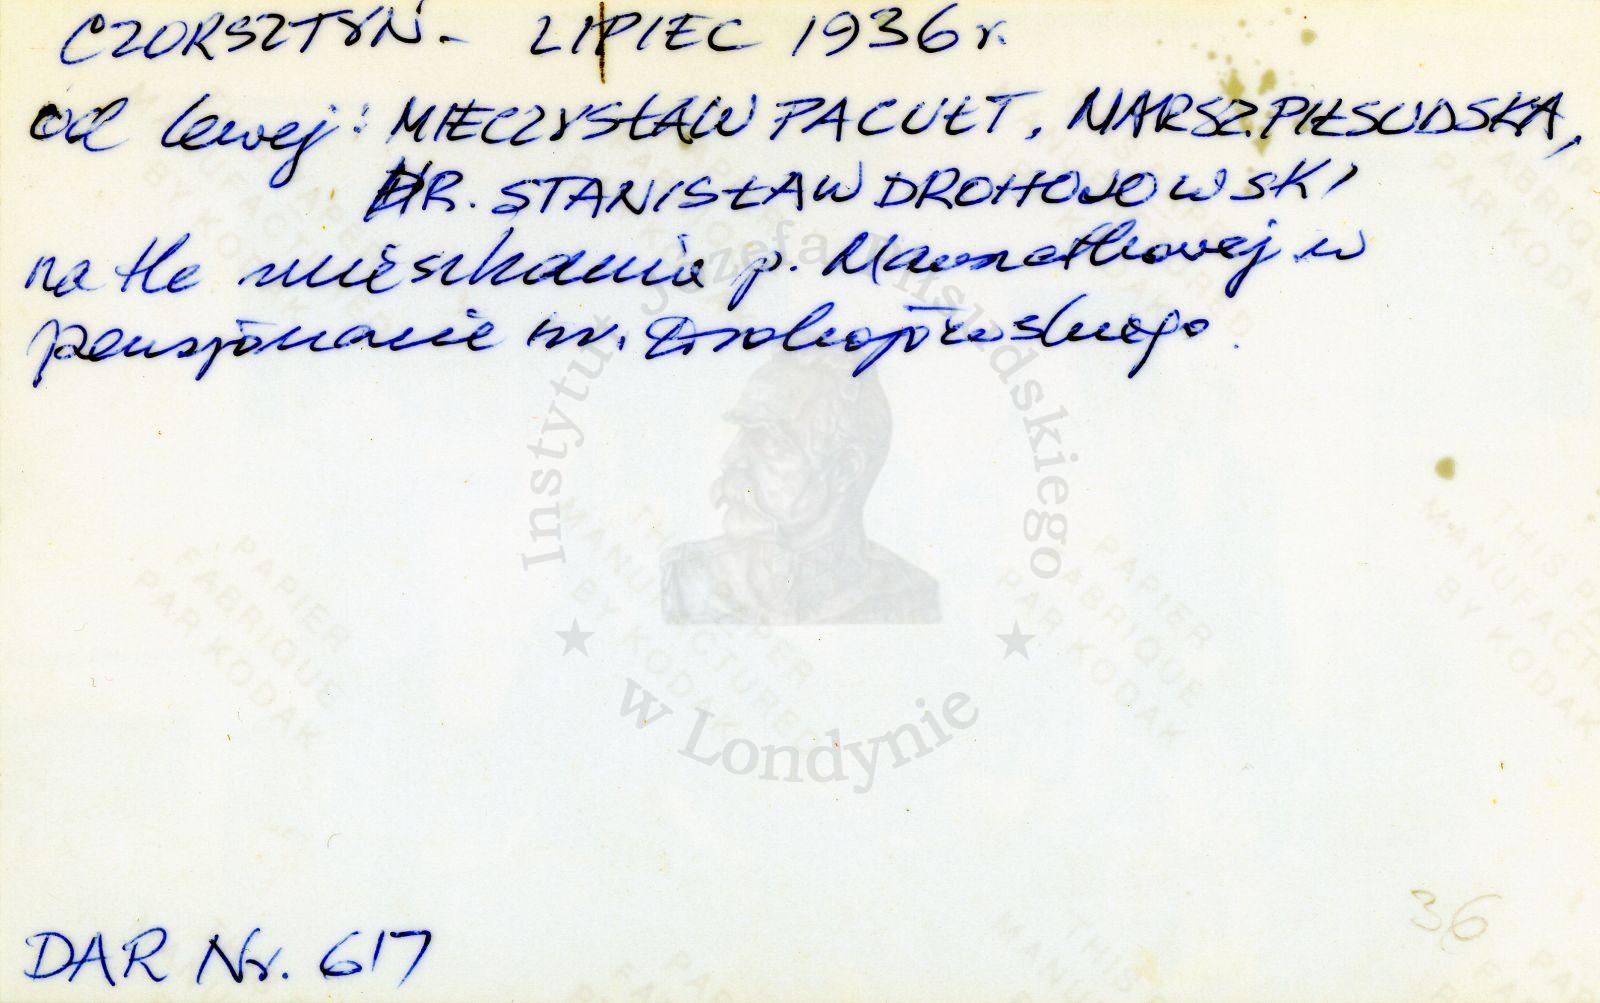 CZORSZTYN - LIPIEC 1936 r.
od lewej: MIECZYSŁAW PACUŁT, MARSZ. PIŁSUDSKA,
HR. STANISŁAW DROHOJOWSKI
na tle mieszkania p. w
pensjonacie hr. Drohojowskiego.
Instytut Józefa Piłsudskiego
w Londynie
THIS PAPER
MANUFACTURED
BY KODAK
PAPIER
FABRIQUE
PAR KODAK
DAR Nr. 617
36